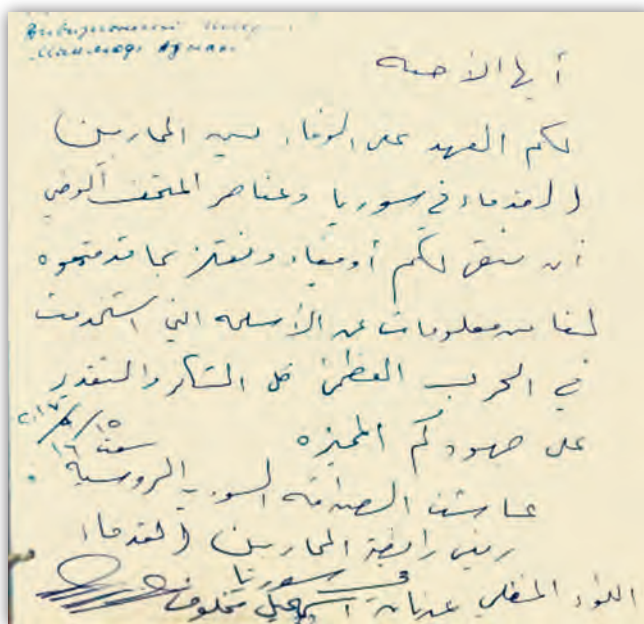 Дивизионный генерал
Махлюф Аднан
أيها الأحبة
لكم العهد على الوفاء بين المحاربين
القدماء في سوريا وعناصر المتحف الوطني
أن نبقى لكم أوفياء ونعتز بما قدمتموه
لنا من معلومات عن الأسلحة التي استخدمت
في الحرب العظمى كل الشكر والتقدير
على جهودكم المميزه
١٥/٥/٢٠١٧
عاشت الصداقة السورية الروسية
رئيس رابطة المحاربين القدماء
في سوريا
اللواء عدنان اسماعيل مخلوف